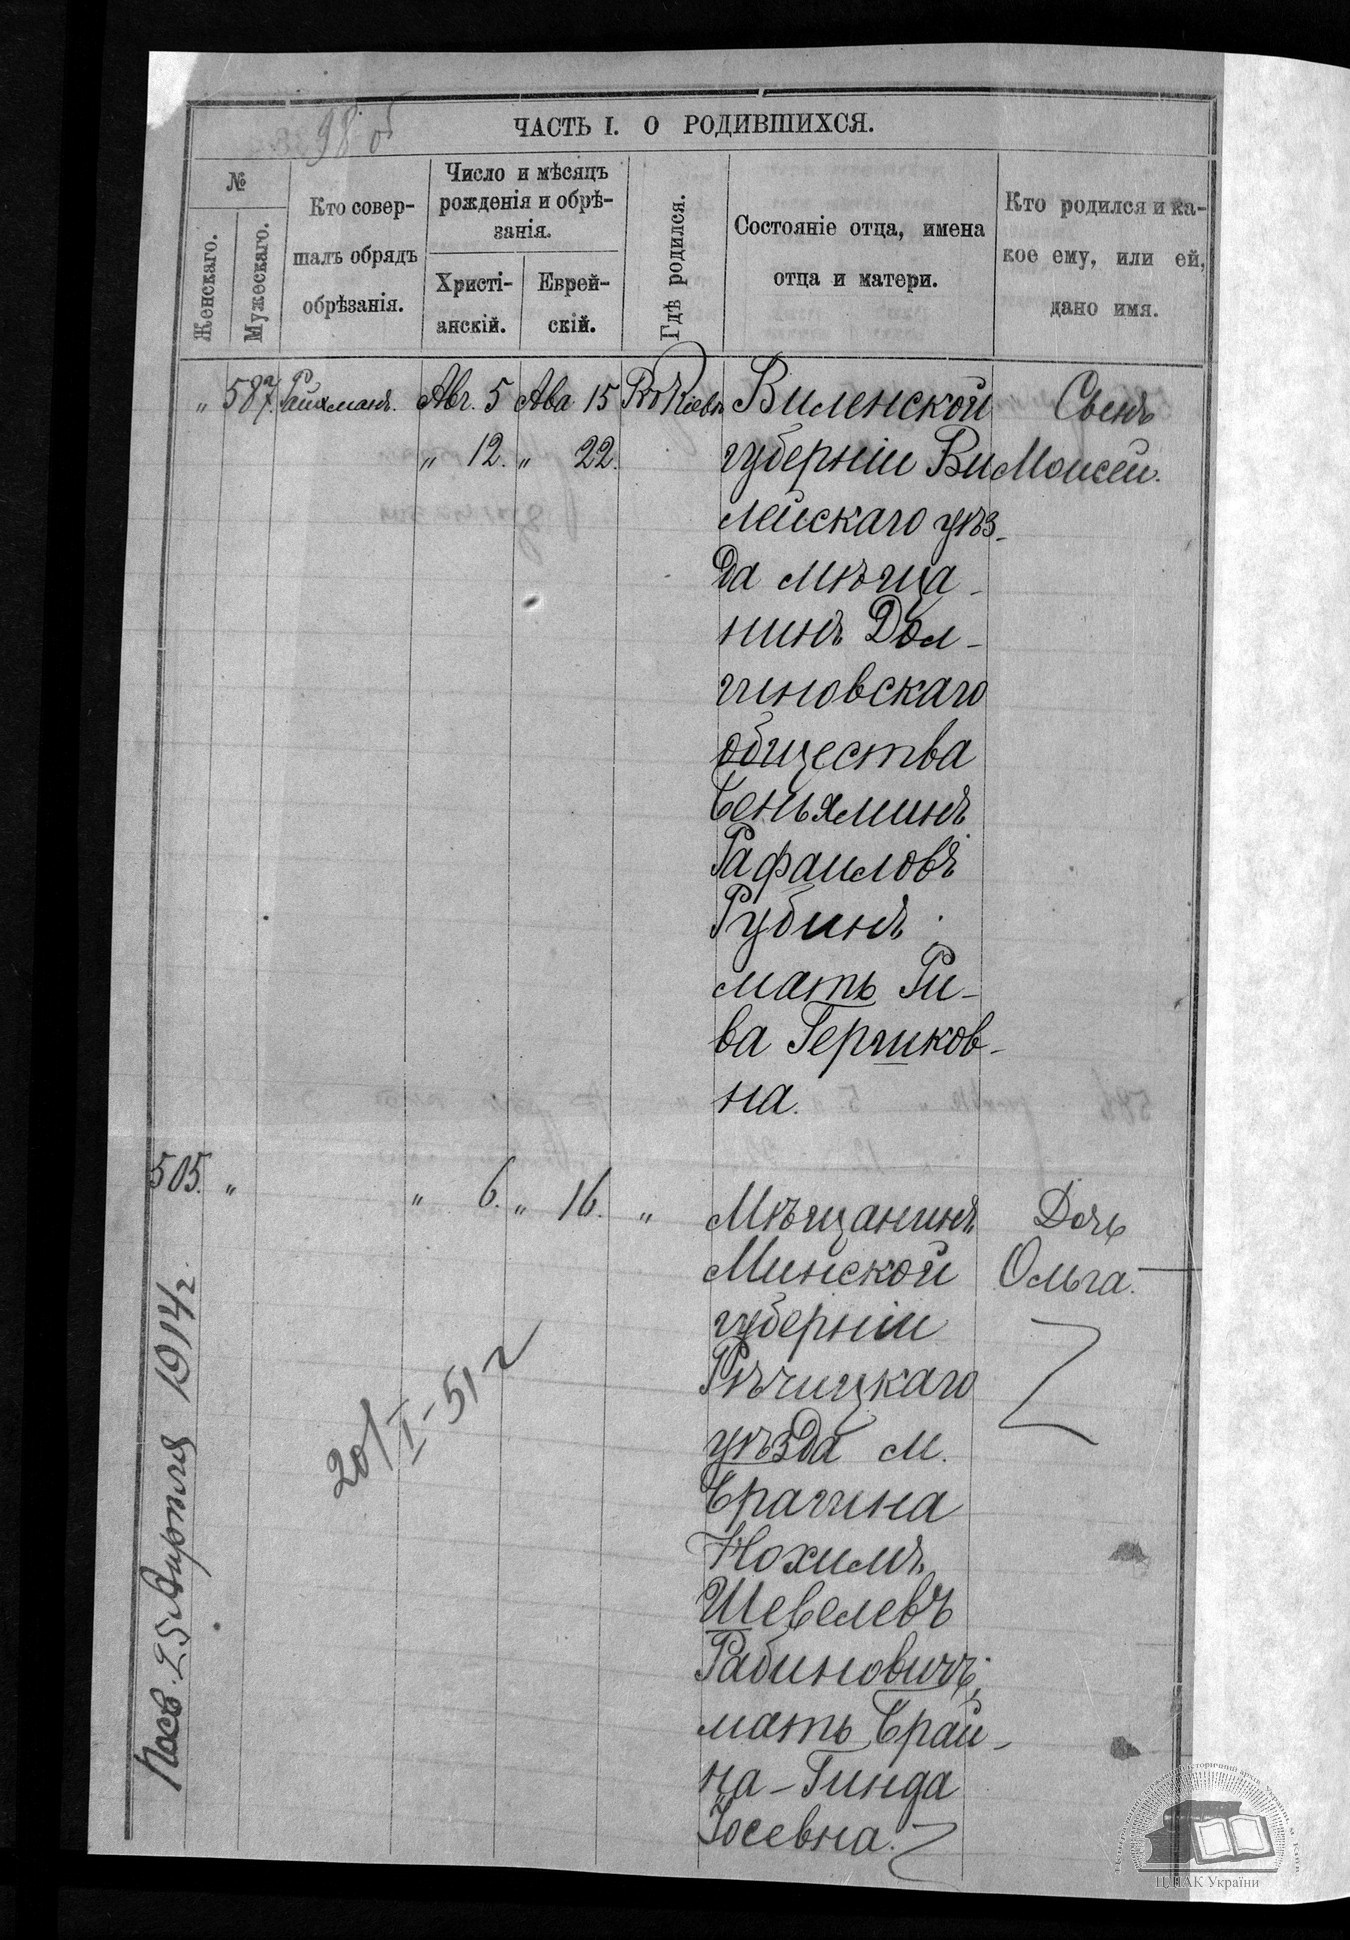 98 об
ЧАСТЬ I. О РОДИВШИХСЯ.
№
Женскаго.
Мужескаго.
Кто совер-
шалъ обрядъ
обрѣзанія.
Число и мѣсяцъ
рожденія и обрѣ-
занія.
Христі-
анскій.
Еврей-
скій.
Гдѣ родился.
Состояніе отца, имена
отца и матери.
Кто родился и ка-
кое ему, или ей,
дано имя.
" 587 Райхманъ. Авг. 5 Ава 15 Въ Кіевѣ Виленской Сынъ
" 12. " 22. губерніи Ви Моисей.
лейскаго уѣз-
да мѣща-
нинъ Дол-
гиновскаго
общества
Беньяминъ
Рафаиловъ
Рубинъ
мать Ри-
ва Гершков-
на.
505. " " 6. " 16. " Мѣщанинъ Дочь
Минской Ольга.
губерніи
Рѣчицкаго
уѣзда м.
Брагина
Нохимъ
Шевелевъ
Рабиновичъ,
мать Брай-
на-Гинда
Іосевна.
25 Апрѣля 1914 г.
20/I-51 г
ЦДІАК України